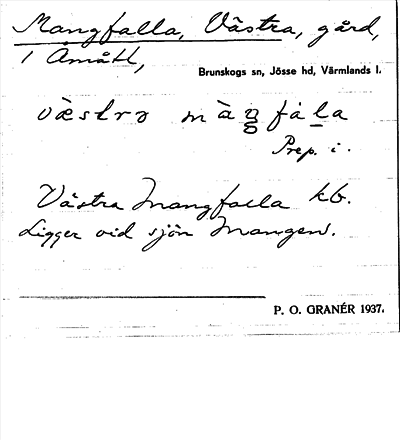 Mangfalla, Västra, gård,
1 Åmåtl,
Brunskogs sn, Jösse hd, Värmlands l.
væstra màŋfàla
Prep. i.
Västra Mangfalla kb.
Ligger vid sjön Mangen.
P. O. GRANÉR 1937.